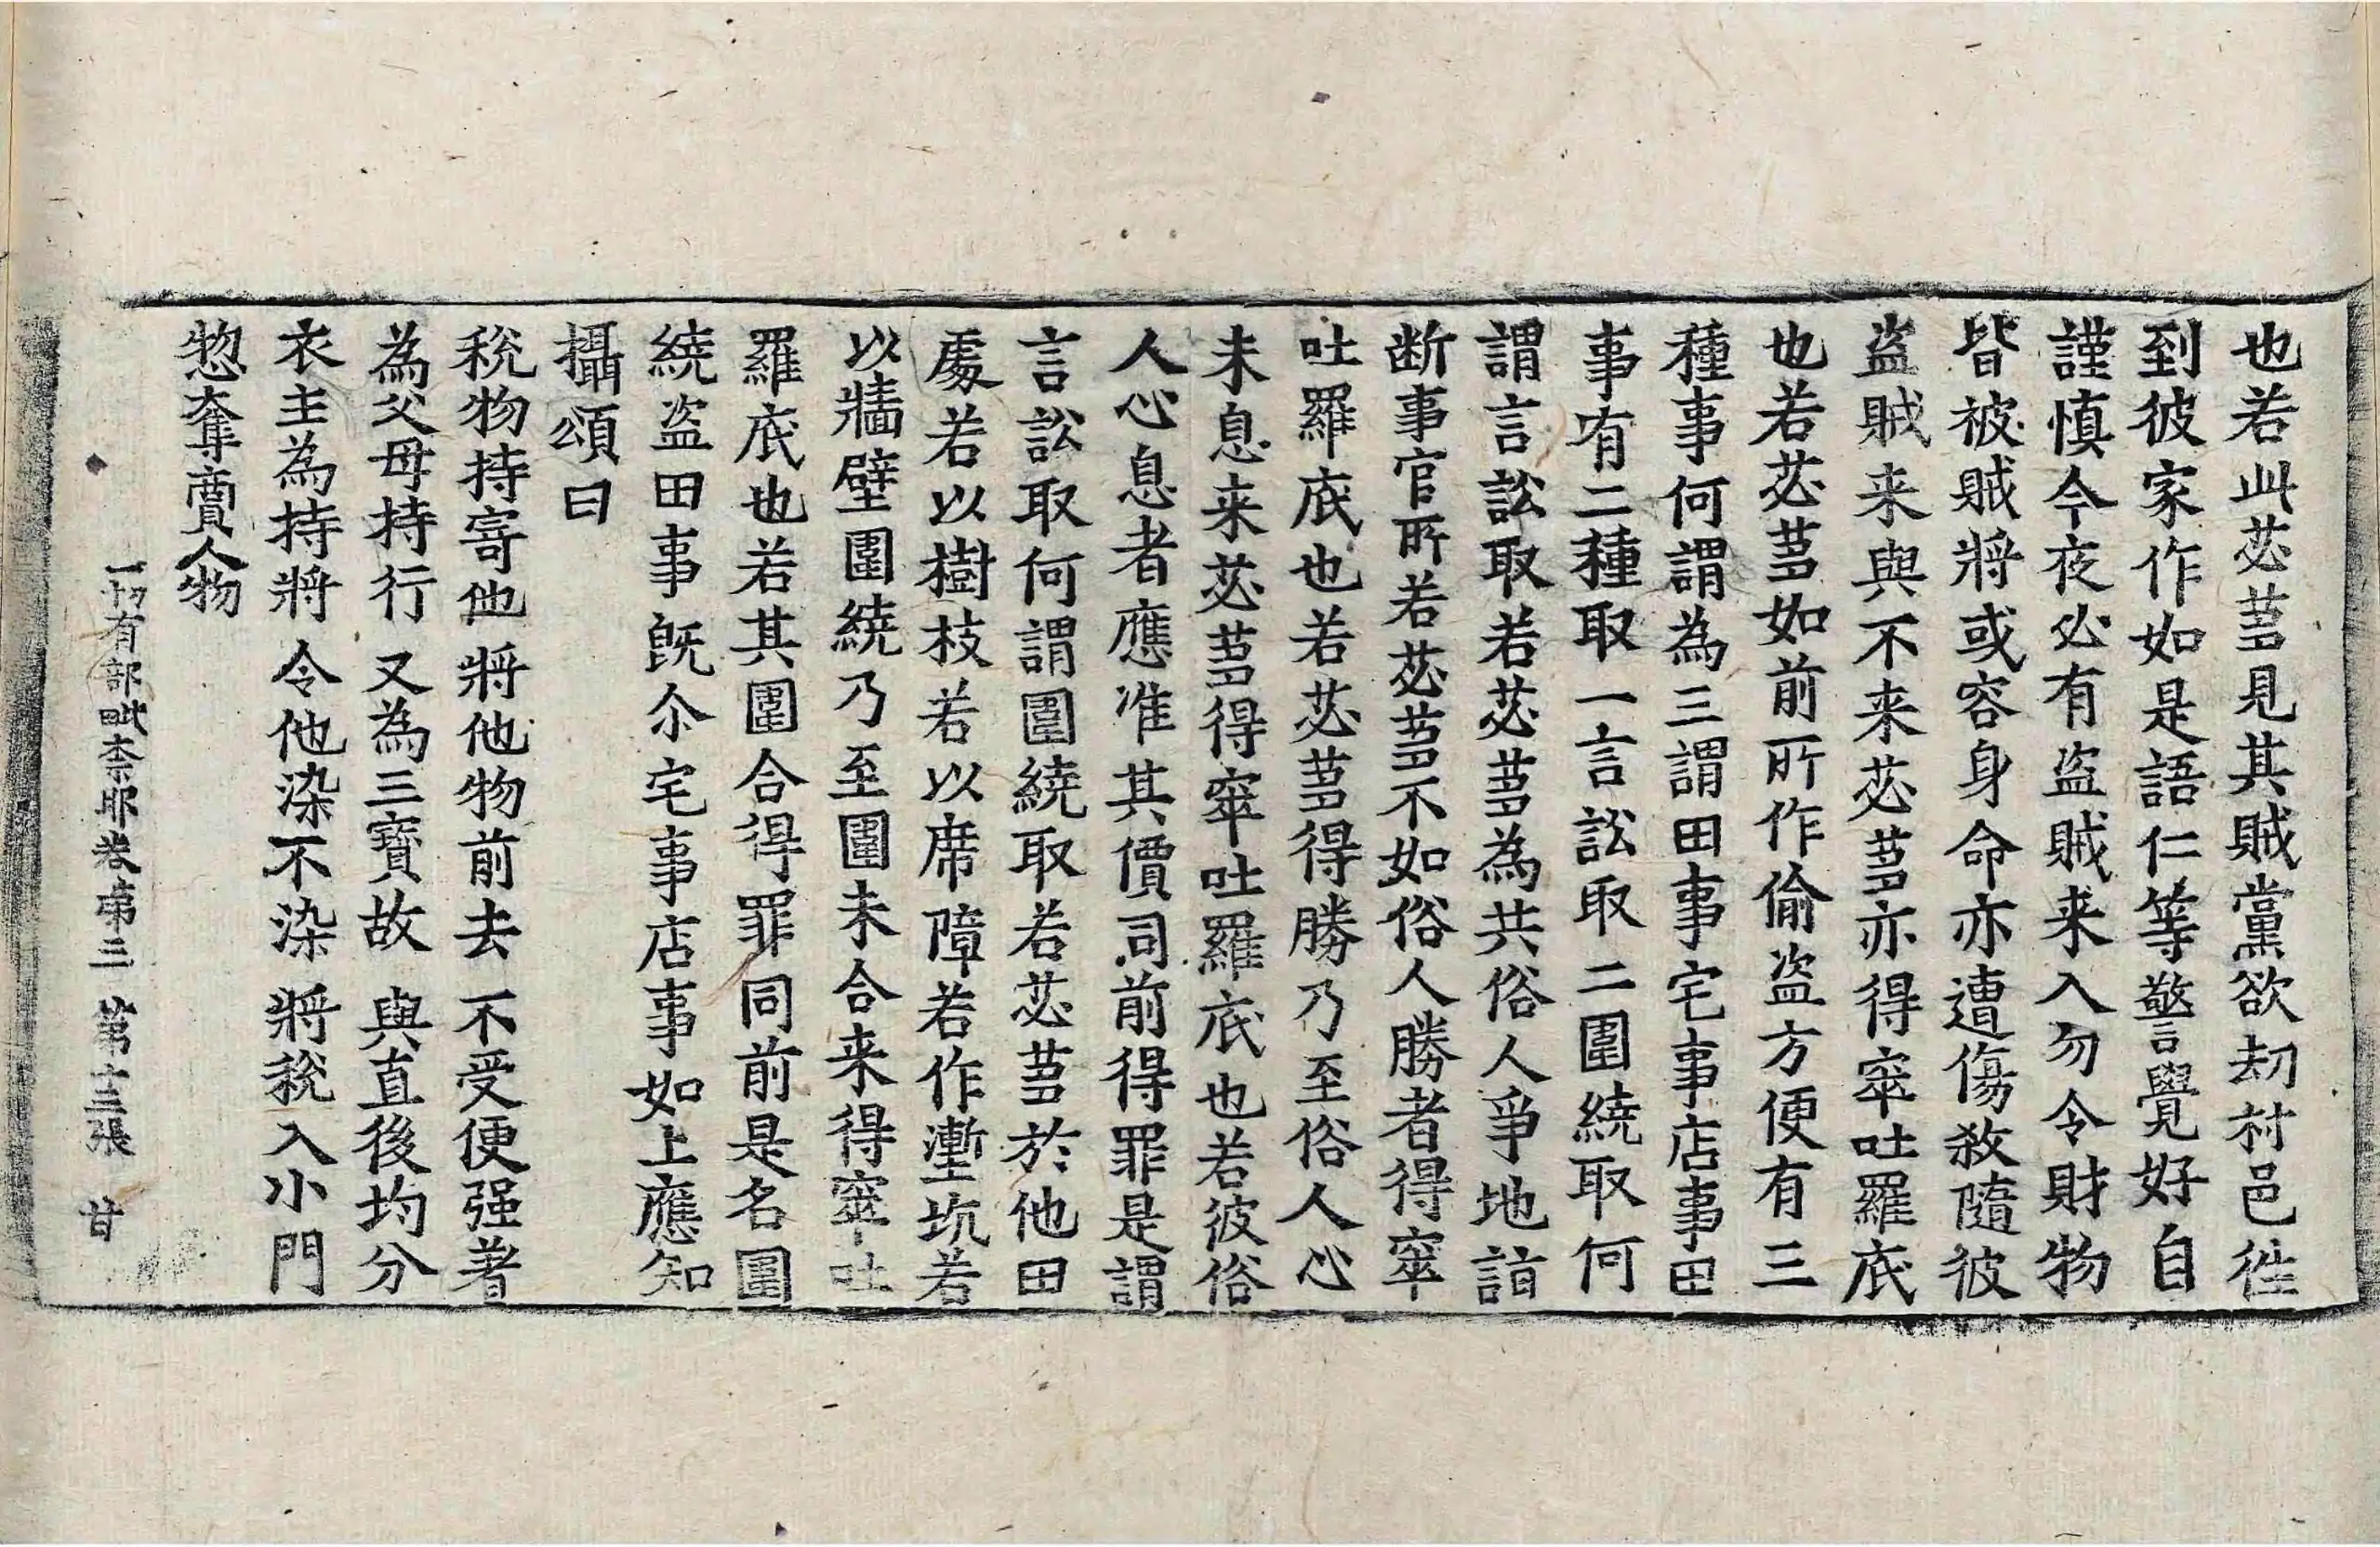 也若此苾蒭見其賊黨欲刧村邑徃
到彼家作如是語仁等警覺好自
謹慎今夜必有盗賊来入勿令財物
皆被賊將或容身命亦遭傷殺隨彼
盗賊来與不来苾蒭亦得窣吐羅底
也若苾蒭如前所作偷盗方便有三
種事何謂為三謂田事宅事店事田
事有二種取一言訟取二圍繞取何
謂言訟取若苾蒭為共俗人爭地詣
断事官所若苾蒭不如俗人勝者得窣
吐羅底也若苾蒭得勝乃至俗人心
未息来苾蒭得窣吐羅底也若彼俗
人心息者應准其價同前得罪是謂
言訟取何謂圍繞取若苾蒭於他田
處若以樹枝若以席障若作壍坑若
以牆壁圍繞乃至圍未合来得窣吐
羅底也若其圍合得罪同前是名圍
繞盗田事既尒宅事店事如上應知
攝頌曰
稅物持寄他 將他物前去 不受便强著
為父母持行 又為三寶故 與直後均分
衣主為持將 令他染不染 將稅入小門
惣奪賣人物
一切有部毗奈耶卷第三 第十三張 甘